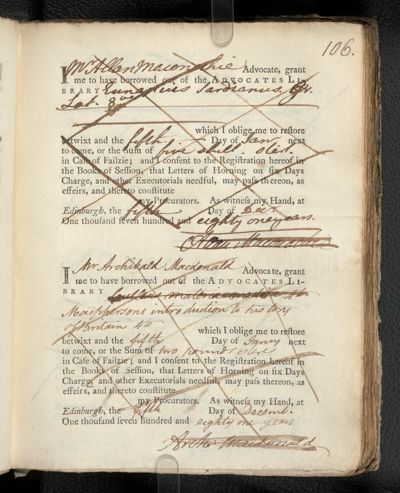 106.
I Mr Allan Maconochie Advocate, grant
me to have borrowed out of the ADVOCATES LI-
BRARY Eunapius Sardianus, Gr.
Lat. 8vo
which I oblige me to restore
betwixt and the fifth Day of Jany next
to come, or the Sum of five shill. ster.
in Case of Failzie; and I consent to the Registration hereof in
the Books of Session, that Letters of Horning on six Days
Charge, and other Executorials needful, may pass thereon, as
effeirs, and thereto constitute
my Procurators. As witness my Hand, at
Edinburgh, the fifth Day of Decr.
One thousand seven hundred and eighty one years.
Allan Maconochie
I Mr Archibald Macdonald Advocate, grant
me to have borrowed out of the ADVOCATES LI-
BRARY
Macphersons introduction to history
of Britain 4to
which I oblige me to restore
betwixt and the fifth Day of Janry next
to come, or the Sum of two pounds ster.
in Case of Failzie; and I consent to the Registration hereof in
the Books of Session, that Letters of Horning on six Days
Charge, and other Executorials needful, may pass thereon, as
effeirs, and thereto constitute
my Procurators. As witness my Hand, at
Edinburgh, the fifth Day of Decemr.
One thousand seven hundred and eighty one years
Archd Macdonald